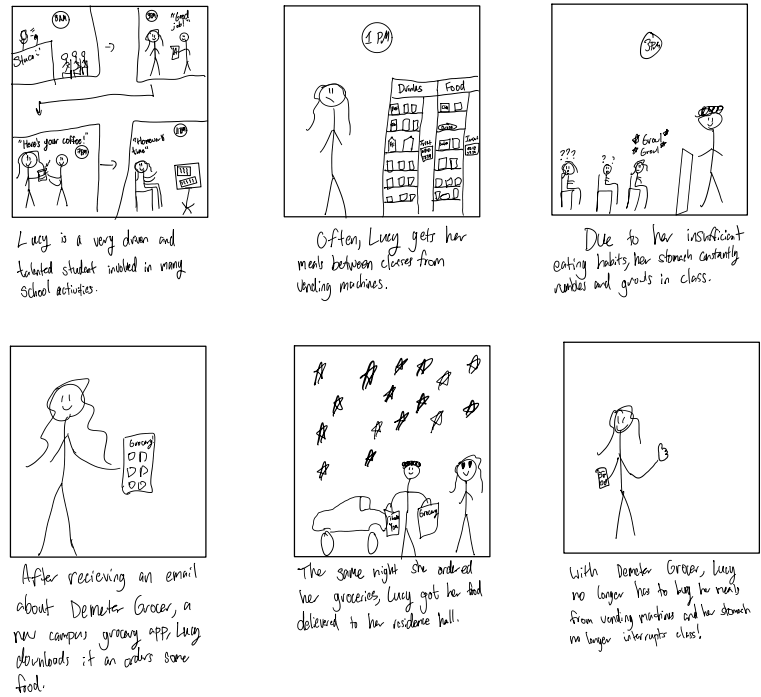 8AM
Stuco
9PM
"Good
job!"
"Here's your coffee!"
7PM
"Homework
time"
11PM
Lucy is a very driven and
talented student involved in many
School activities.
1 PM
Drinks
Food
Insert
Insert
Often, Lucy gets her
meals between classes from
vending machines.
3PM
???
? ?
Growl
Growl
Due to her insufficient
eating habits, her stomach constantly
rumbles and growls in class.
Grocery
After recieving an email
about Demeter Grocer, a
new campus grocery app, Lucy
downloads it an orders some
food.
Thank
You
Grocery
The same night she ordered
her groceries, Lucy got her food
delievered to her residence hall.
With Demeter Grocer, Lucy
no longer has to buy her meals
from vending machines and her stomach
no longer interrupts class!